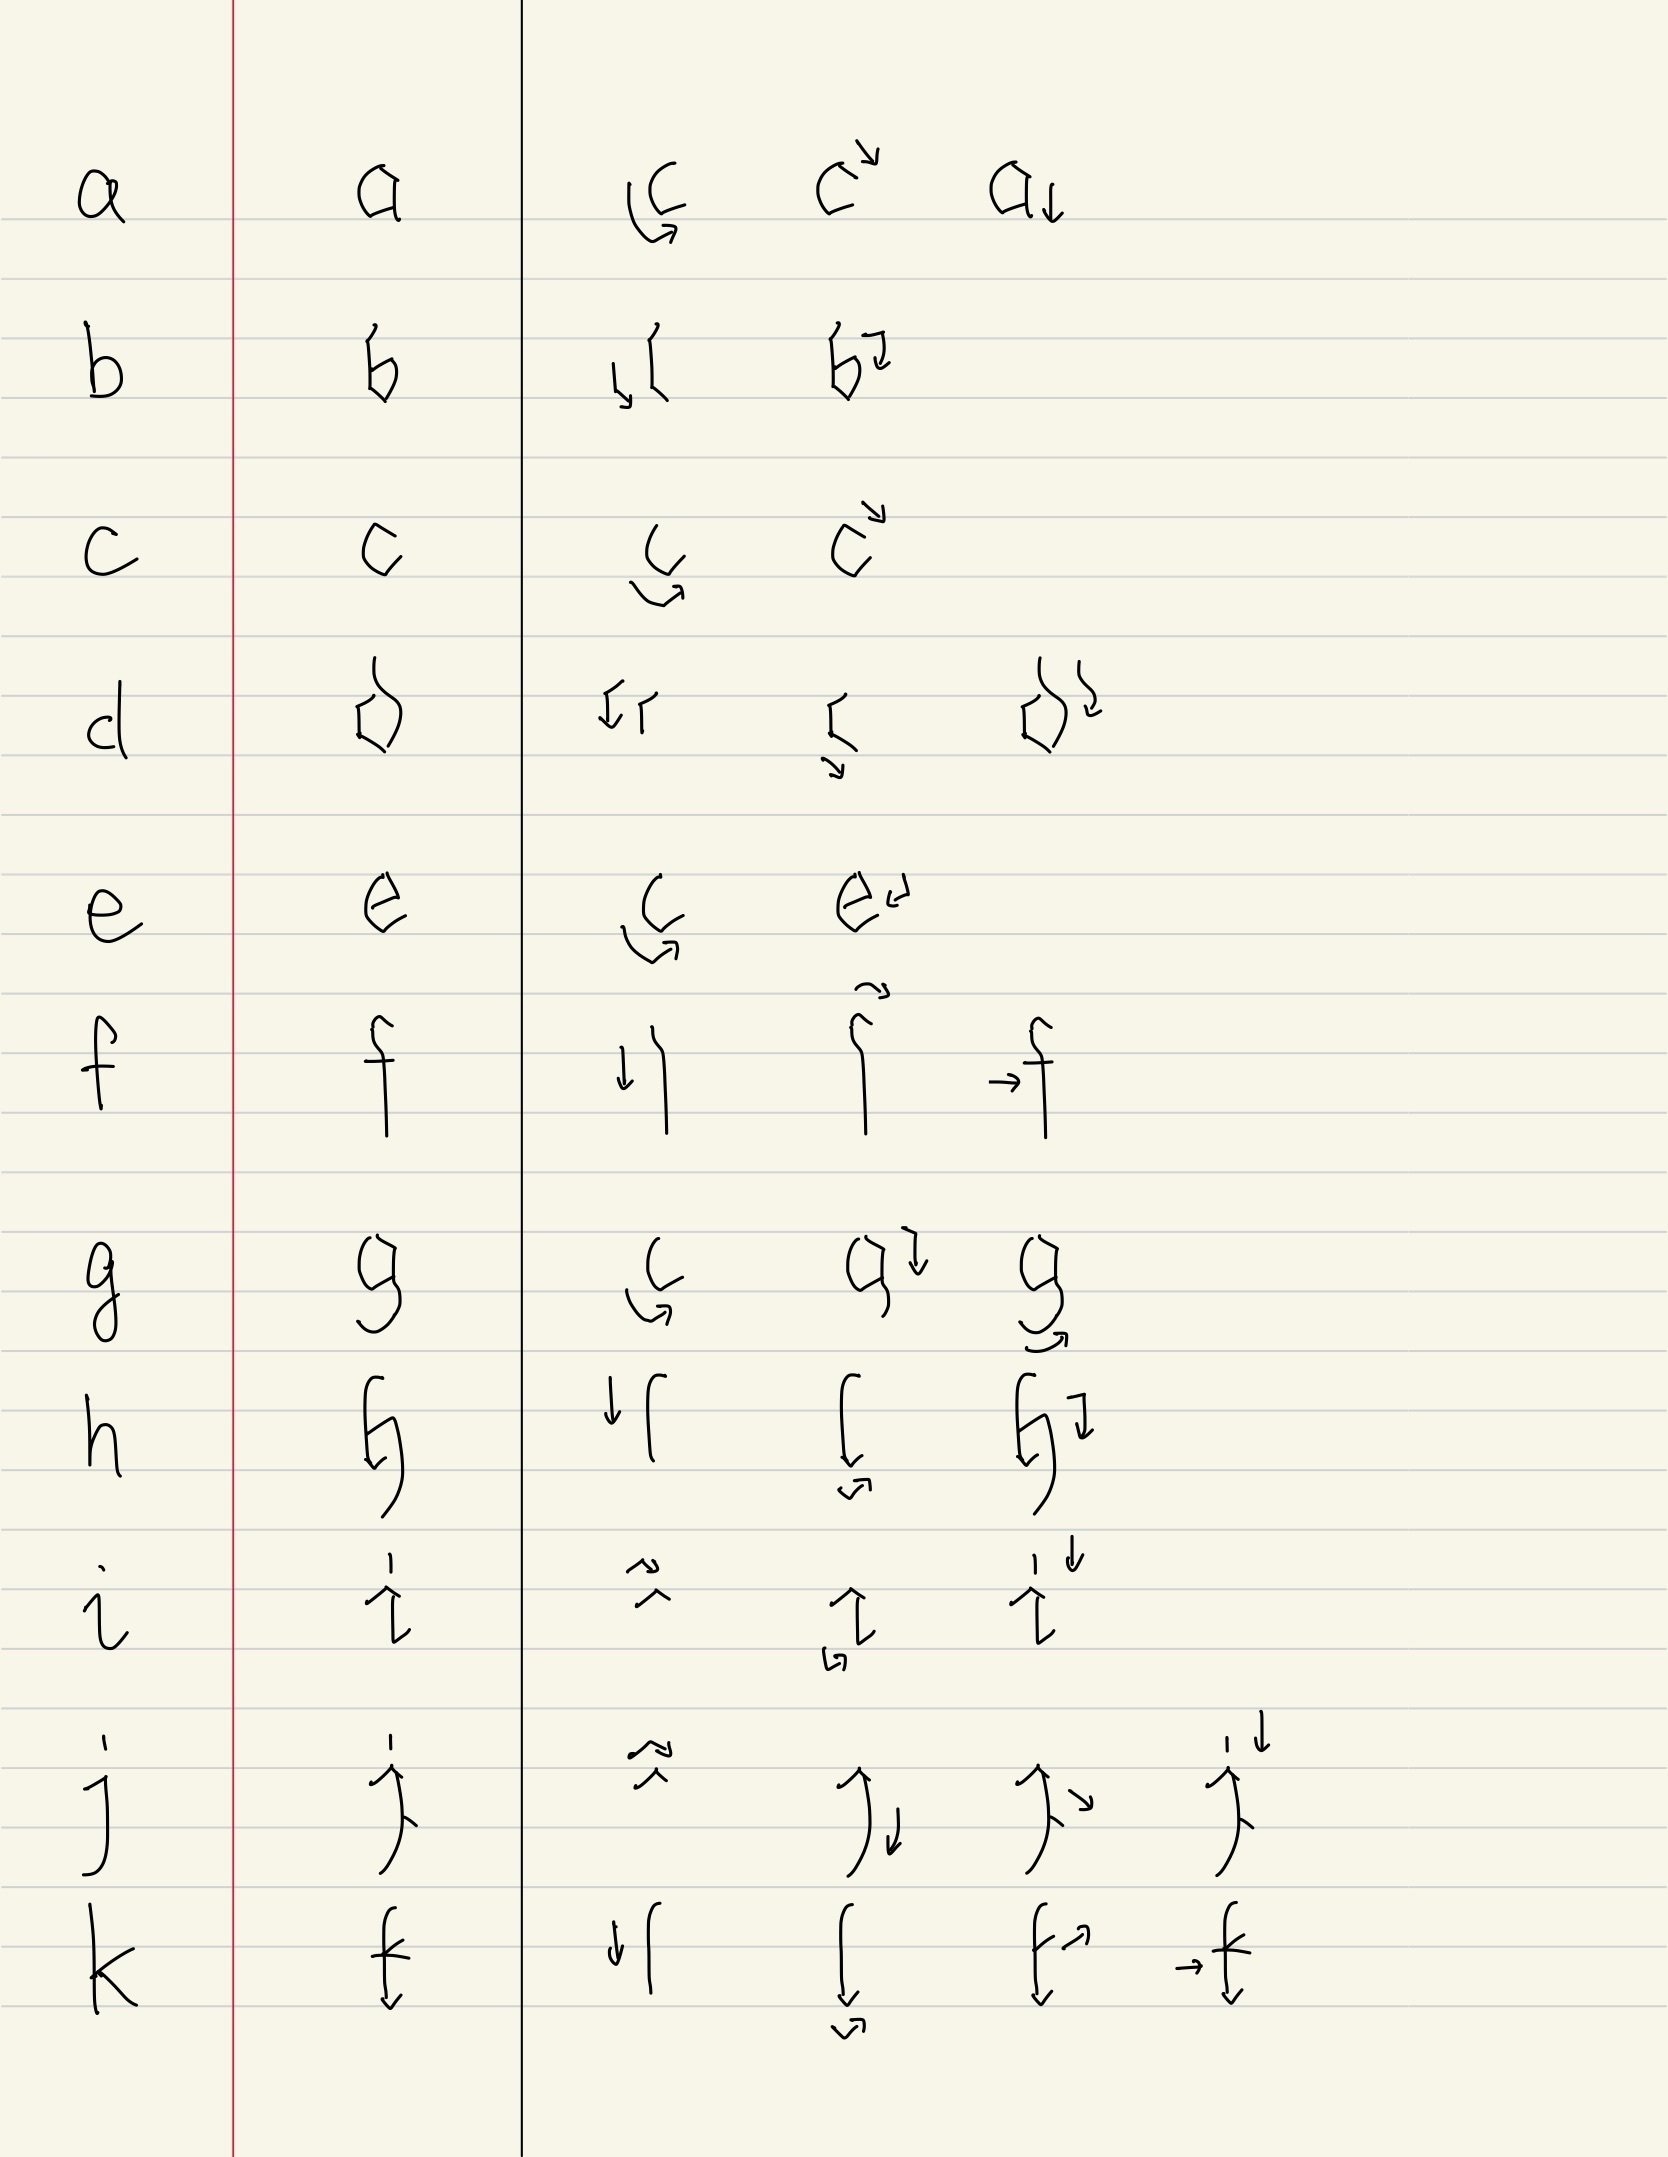 a a
b b
c c
d d
e e
f f
g g
h h
i i
j j
k k